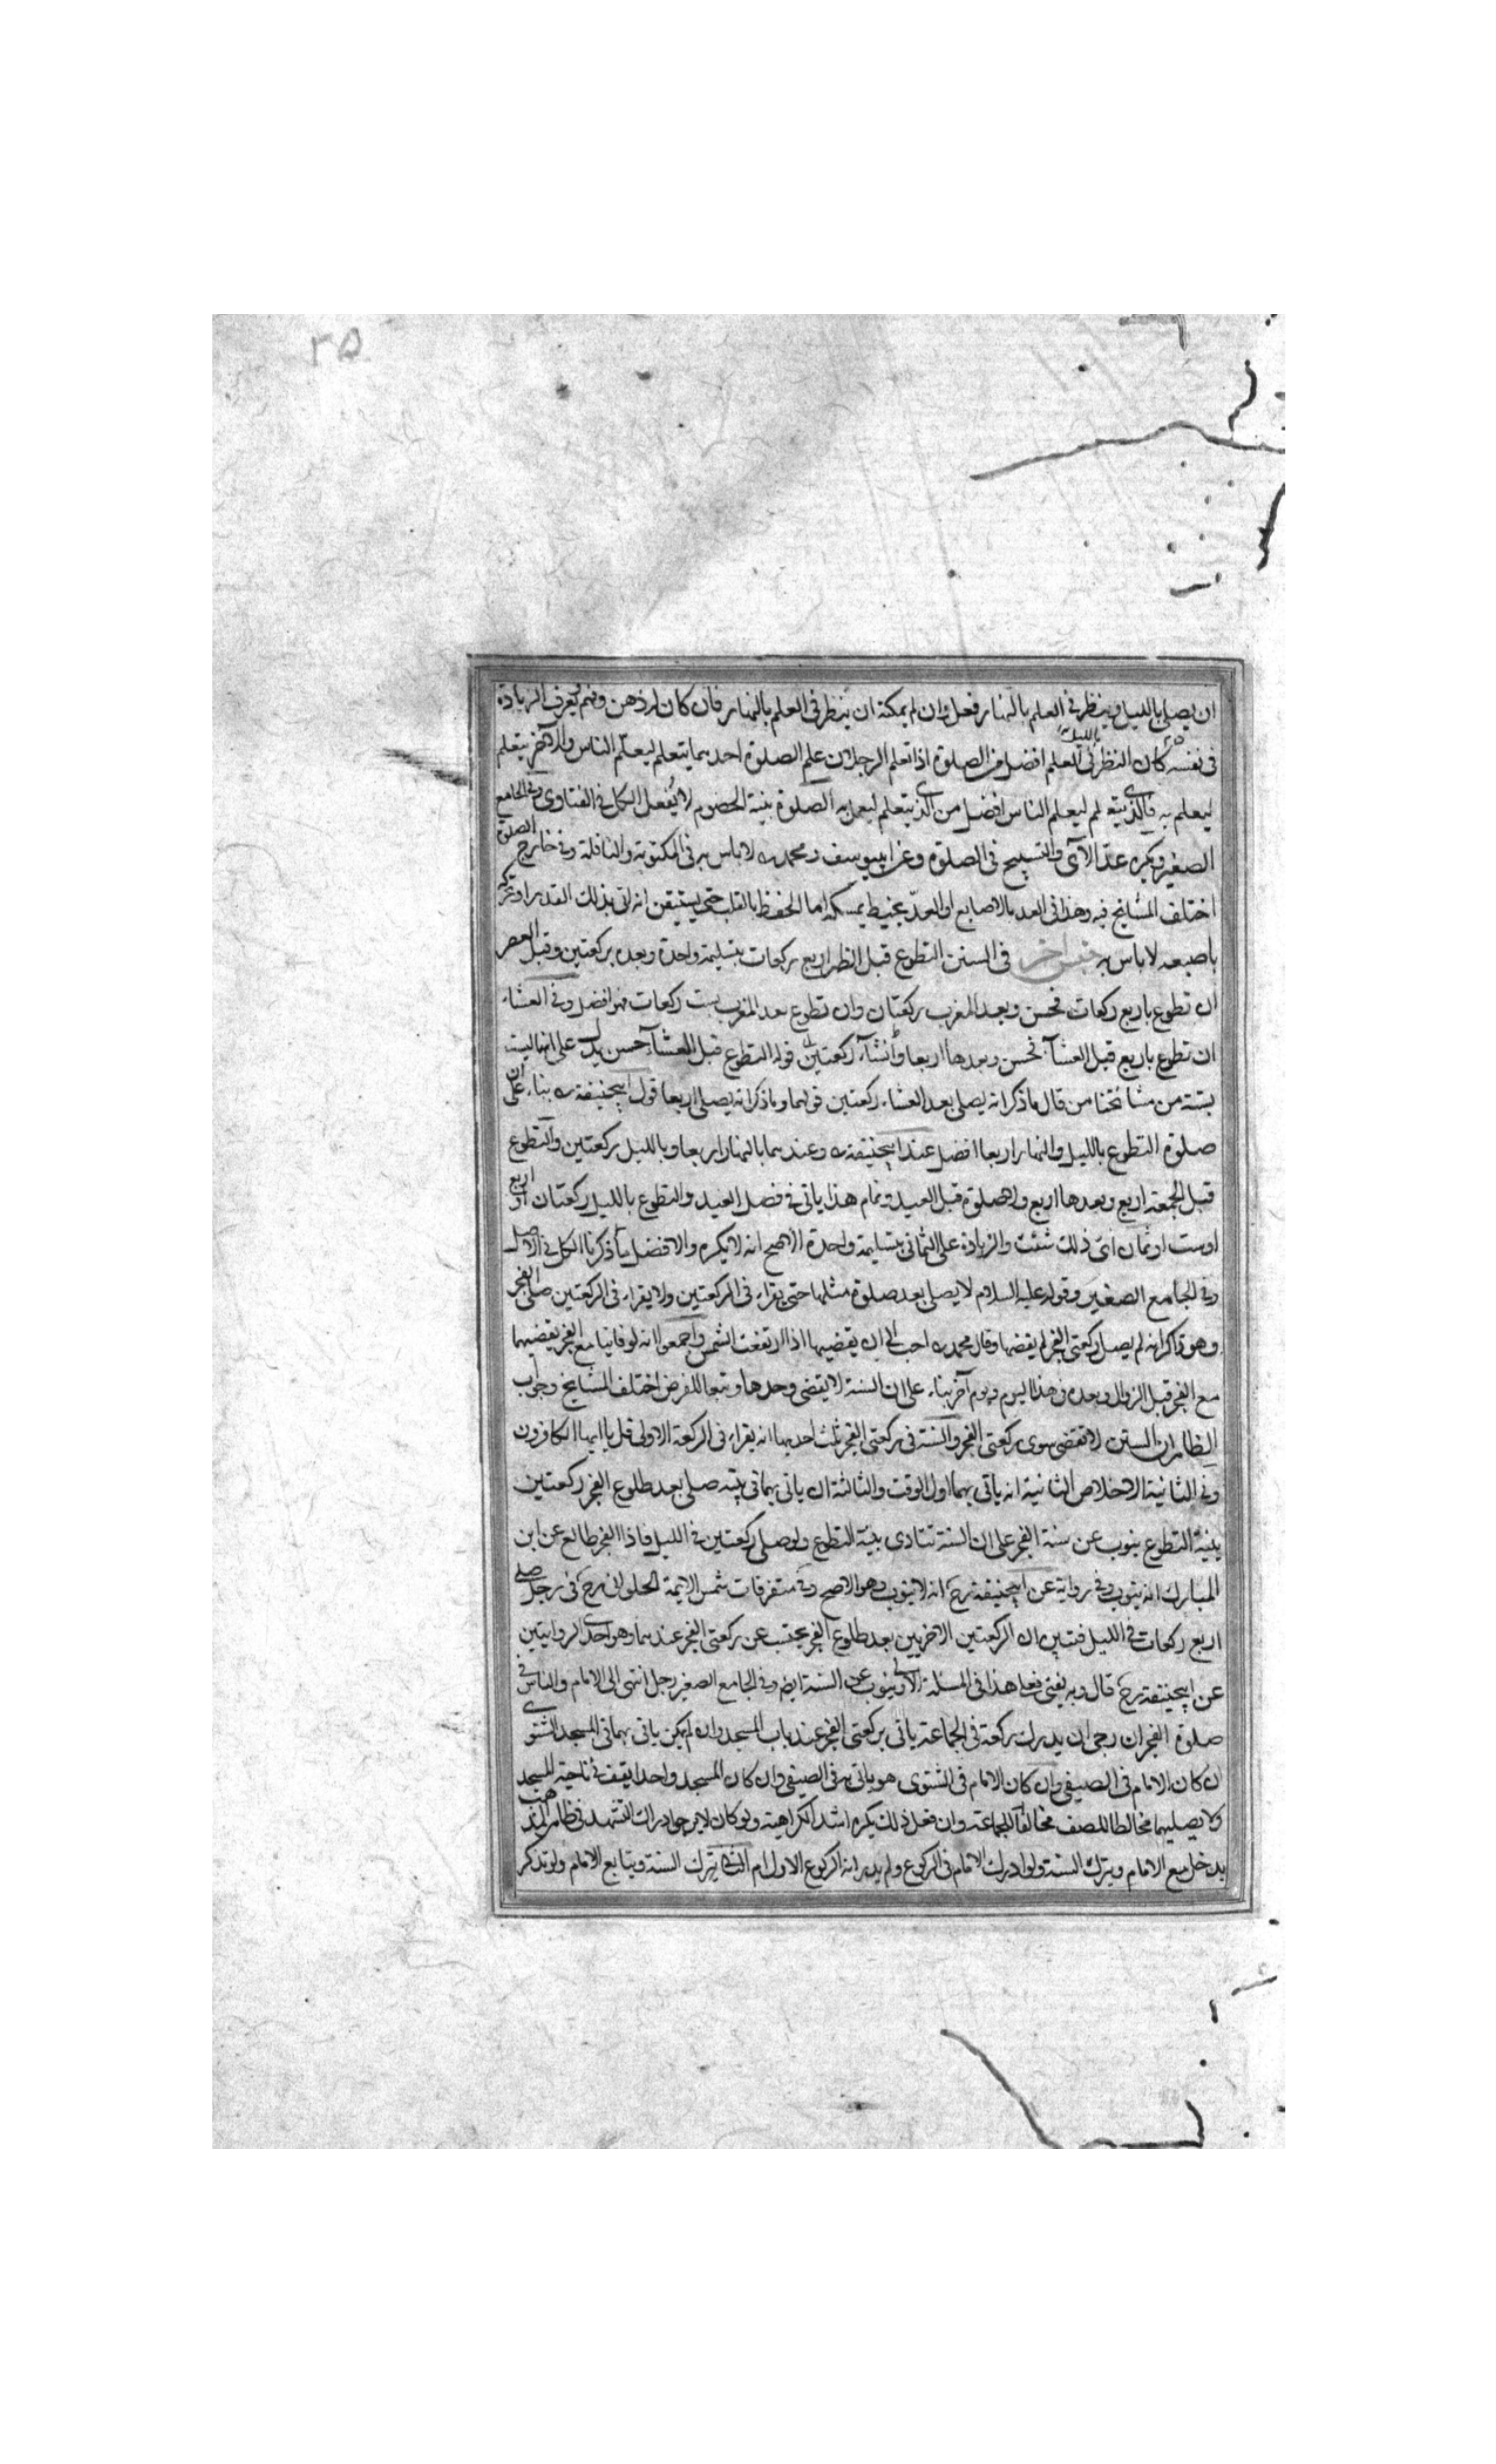 ٢٥
ان يصلي بالليل وينظر في العلم بالنهار فعل وان لم يمكنه ان ينظر في العلم بالنهار فان كان له ذهن وفهم يعرف الزيادة
في نفسه كان النظر في العلم بالليل افضل من الصلوة اذا تعلم الرجلان علم الصلوة احدهما يتعلم ليعلم الناس والاخر يتعلم
ليعلم به فالذي يتعلم ليعلم الناس افضل من الذي يتعلم ليعمل به الصلوة بنية الخصوم لا يفعل الكل في الفتاوى وفي الجامع
الصغير ويكره عد الآي والتسبيح في الصلوة وعن ابيوسف ومحمد ره لا باس به في المكتوبة والنافلة وفي خارج الصلوة
اختلف المشايخ فيه وهذا في العد بالاصابع او العد بخيط يمسكه اما الحفظ بالقلب حتى يستيقن انه اتى بذلك القدر او تحركه
باصبعه لا باس به جنس اخر في السنن التطوع قبل الظهر اربع ركعات بتسليمة واحدة وبعده ركعتين وقبل العصر
ان تطوع باربع ركعات فحسن وبعد المغرب ركعتان وان تطوع بعد المغرب بست ركعات فهو افضل وفي العشاء
ان تطوع باربع قبل العشاء فحسن وبعدها اربعا وان شاء ركعتين قوله التطوع قبل العشاء حسن يدل على انها ليست
بسنة من مشائخنا من قال ما ذكر انه يصلي بعد العشاء ركعتين قولهما وما ذكر انه يصلي اربعا قول ابيحنيفة ره بناء على ان
صلوة التطوع بالليل والنهار اربعا افضل عند ابيحنيفة ره وعندهما بالنهار اربعا وبالليل ركعتين والتطوع
قبل الجمعة اربع وبعدها اربع ولا صلوة قبل العيد وتمام هذا ياتي في فصل العيد والتطوع بالليل ركعتان او اربع
او ست او ثمان اي ذلك شئت والزيادة على الثماني بتسليمة واحدة الاصح انه لا يكره والافضل ما ذكرنا الكل في الاصل
وفي الجامع الصغير وقوله عليه السلام لا يصلي بعد صلوة مثلها حتى يقراء في الركعتين ولا يقراء في الركعتين صلى الفجر
وهو ذاكر انه لم يصل ركعتي الفجر لم يقضها وقال محمد ره احب الي ان يقضيها اذا ارتفعت الشمس واجمعوا انه لو فاتتا مع الفجر يقضيهما
مع الفجر قبل الزوال وبعده في هذا اليوم ويوم آخر بناء على ان السنة لا يقضى وحدها وتبعا للفرض اختلف المشايخ وجواب
الظاهر ان السنن لا تقضى سوى ركعتي الفجر والسنة في ركعتي الفجر ثلث احديها انه يقراء في الركعة الاولى قل يا ايها الكافرون
وفي الثانية الاخلاص الثانية انه ياتي بهما اول الوقت والثالثة ان ياتي بهما في بيته صلى بعد طلوع الفجر ركعتين
بنية التطوع ينوب عن سنة الفجر على ان السنة تتادى بنية التطوع ولو صلى ركعتين في الليل فاذا الفجر طالع عن ابن
المبارك انه ينوب وفي رواية عن ابيحنيفة رح انه لا ينوب وهو الاصح وفي متفرقات شمس الايمة الحلواني رح في رجل صلى
اربع ركعات في الليل فتبين ان الركعتين الاخريين بعد طلوع الفجر يحتسب عن ركعتي الفجر عندهما وهو احدى الروايتين
عن ابيحنيفة رح قال وبه يفتى فعلى هذا في المسئلة الاولى ينوب عن السنة ايضا وفي الجامع الصغير رجل انتهى الى الامام والناس في
صلوة الفجر ان رجى ان يدرك ركعة في الجماعة ياتي بركعتي الفجر عند باب المسجد وان لم يمكن ياتي بهما في المسجد الشتوي
ان كان الامام في الصيفي وان كان الامام في الشتوي هو ياتي به في الصيفي وان كان المسجد واحدا يقف في ناحية المسجد
ولا يصليهما مخالطا للصف مخالفا للجماعة وان فعل ذلك يكره اشد الكراهية ولو كان لا يرجو ادراك التشهد في ظاهر المذهب
يدخل مع الامام ويترك السنة ولو ادرك الامام في الركوع ولم يدر انه الركوع الاول ام الثاني يترك السنة ويتابع الامام ولو تذكر